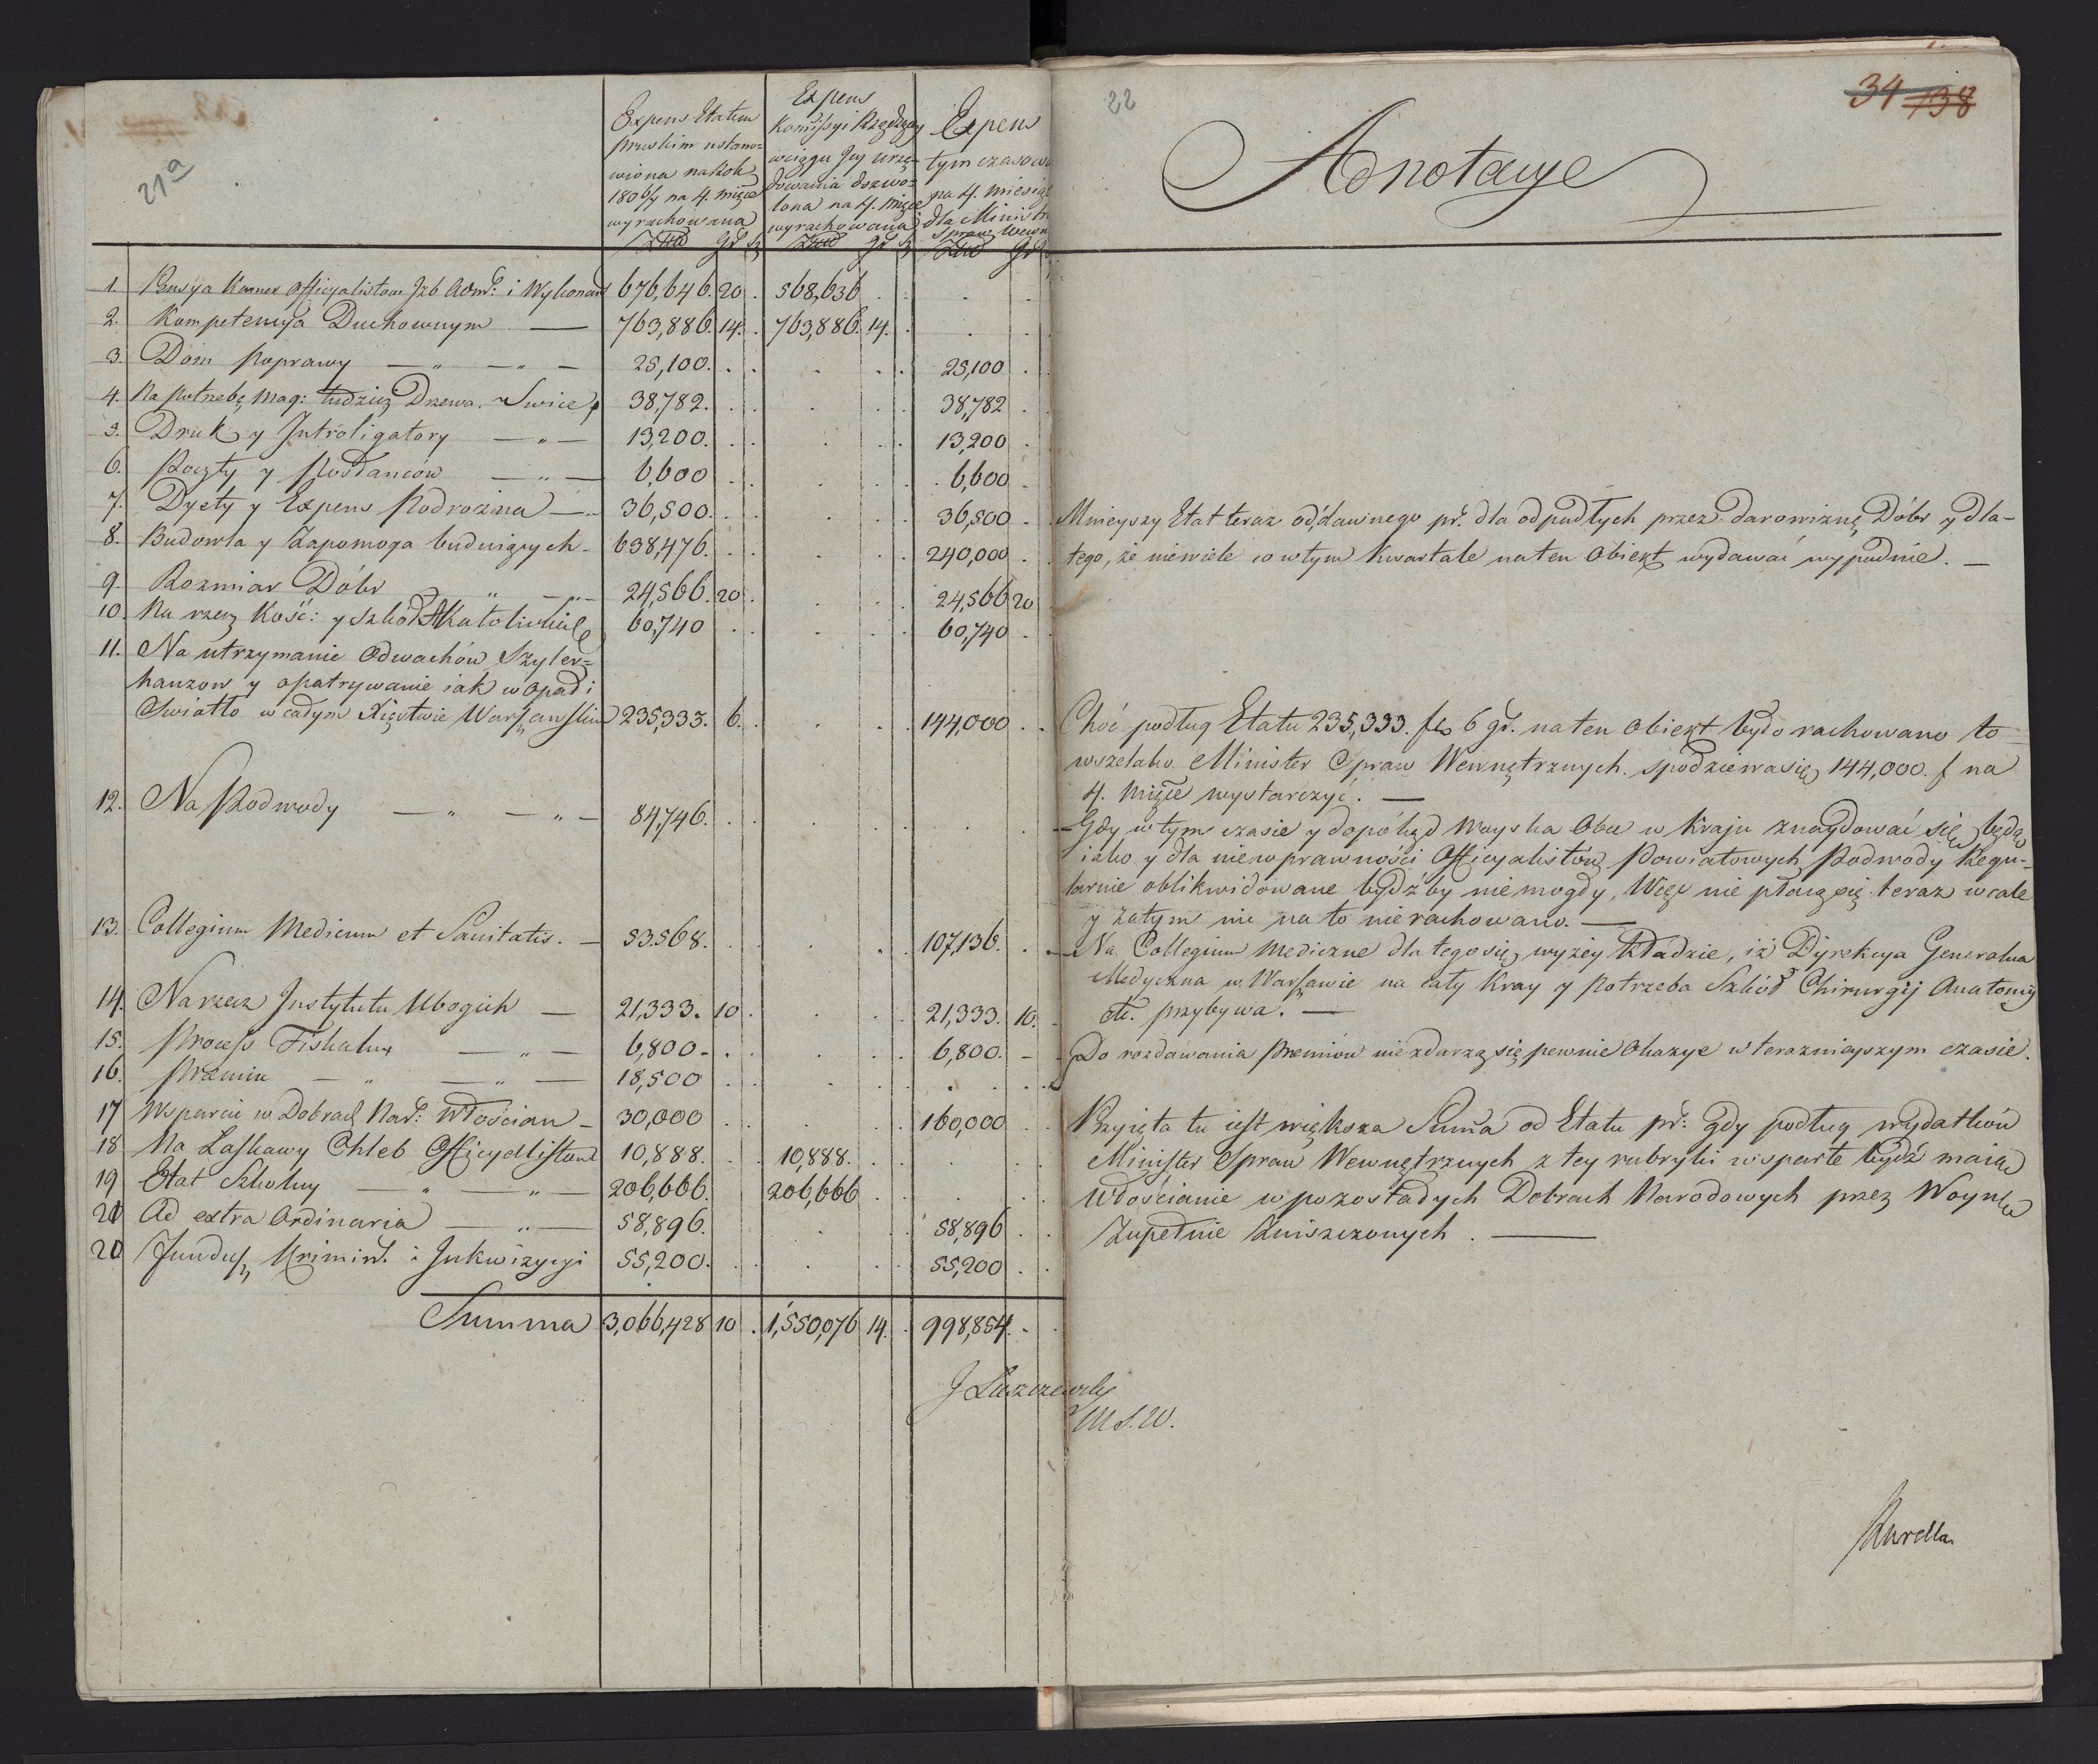 21a
Expens Etatem pruskim ustanowiona na Rok 1806/7 na 4. mięce wyrachowana
Expens Kommissyi Rządzący wciągu Jey urzędowania dozwolona na 4. mięce wyrachowana
Expens tym czasow na 4. miesiące dla Minist Spraw Wewn
1. Pensya Kamer Officyalistom Izb Adm: i Wykonaw 676,646. 20. 568,636
2. Kompetencya Duchownym 763,886. 14. 763,886. 14.
3. Dom Poprawy 25,100. 25,100
4. Na potrzebę Mag: tudzież Drzewa Swiec 38,782. 38,782
5. Druk y Introligatory 13,200. 13,200
6. Poczty y Posłańców 6,600 6,600
7. Dyety y Expens Podrożna 36,500. 36,500
8. Budowla y Zapomoga buduiących 638,476. 240,000
9. Rozmiar Dóbr 24,566. 20 24,566 20
10. Na rzecz Kość: y szkół Katolickich 60,740 60,740
11. Na utrzymanie Odwachów Szyler=
hauzow y opatrywanie iak w opad i
Swiatło w całym Xięstwie Warszawskim 235,333. 6. 144,000
12. Na Podwody 84,746.
13. Collegium Medicum et Sanitatis. 53,568. 107,136.
14. Na rzecz Instytutu Ubogich 21,333. 10 21,333. 10.
15. Process Fiskalny 6,800 6,800.
16. Præmia 18,500
17 Wsparcie w Dobrach Nar: Włościan 30,000 160,000
18 Na Łaskawy Chleb Officyalistom 10,888. 10,888.
19 Etat Szkolny 206,666. 206,666
20 Ad extra Ordinaria 58,896. 58,896
21 Fundusz Krimin. i Inkwizycyi 55,200. 55,200
Summa 3,066,428 10 1,550,076 14. 998,854.
J Łuszczewsky
M S. W.
22
34 138
Adnotacye
Mnieyszy Etat teraz od dawnego pr. dla odpadłych przez darowiznę Dóbr y dla-
tego, że niewiele co w tym Kwartale na ten Obiekt wydawać wypadnie.
Choć podług Etatu 235,333. fl 6 gr. na ten Obiekt było rachowano to
wszelako Minister Spraw Wewnętrznych spodziewa się 144,000. f na
4. mięce wystarczyć.
Gdy w tym czasie y dopókąd Woyska Obce w Kraju znaydować się będą
iako y dla niewprawności Officyalistów Powiatowych Podwody Regu-
larnie oblikwidowane bydź by niemogły, Więc nie płacą się teraz wcale
y zatym nic na to nierachowano.
Na Collegium Mediczne dla tego się wyżey kładzie, iż Dyrekcya Generalna
Medyczna w Warszawie na cały Kray y potrzeba Szkół Chirurgij Anatomij
etc. przybywa.
Do rozdawania Premiow nie zdarzą się pewnie Okazye w teraznieyszym czasie.
Przyięta tu iest większa Suma od Etatu pr: gdy podług wydatków
Minister Spraw Wewnętrznych z tey rubryki wsparte bydź maią
Włościanie w pozostałych Dobrach Narodowych przez Woynę
Zupełnie Zniszczonych.
Kurella